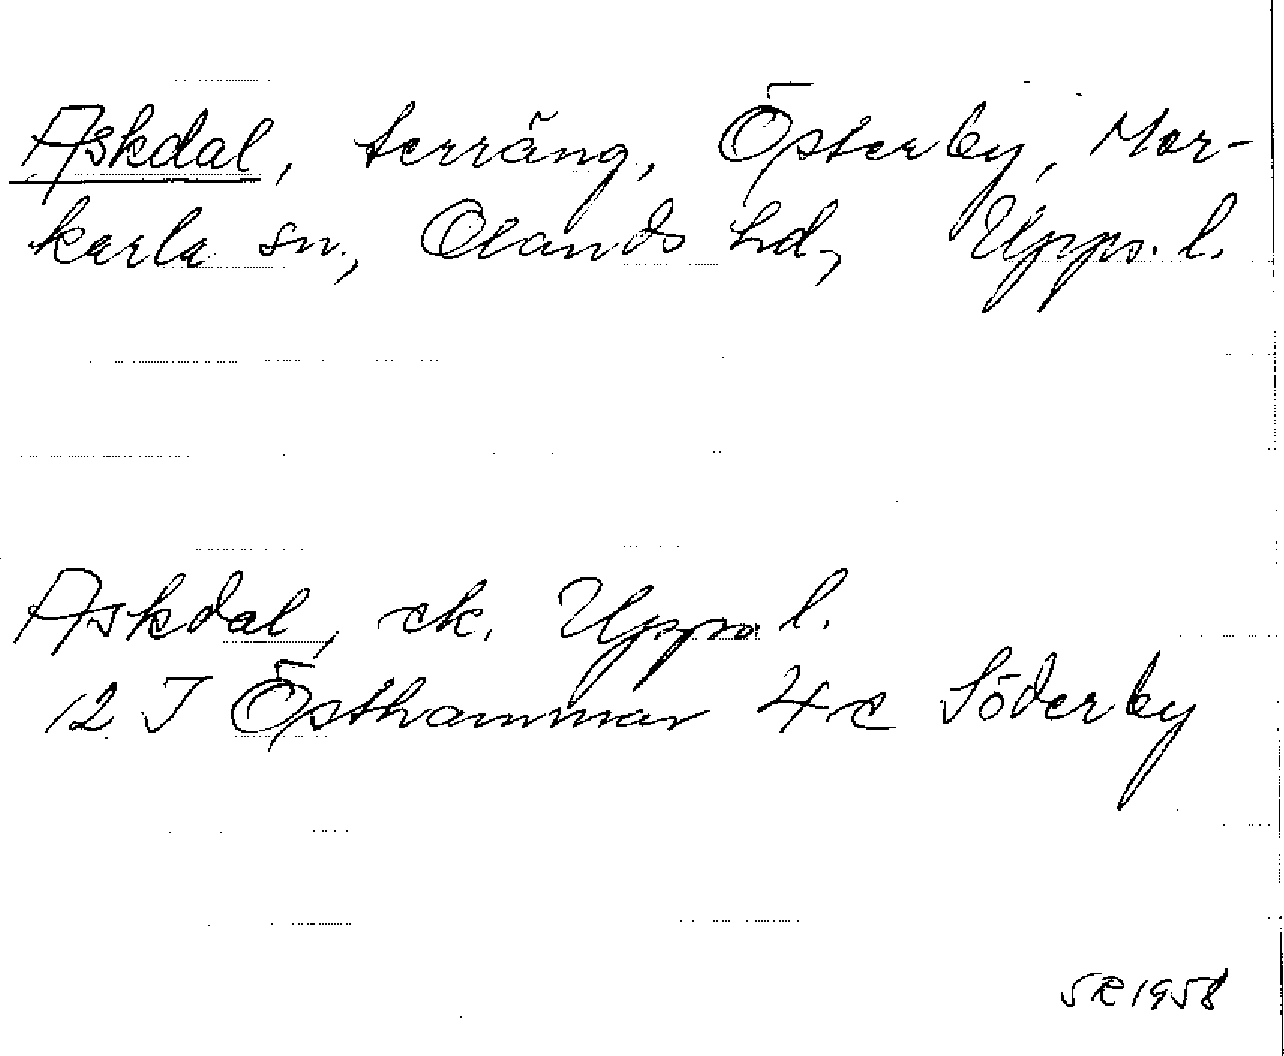 Askdal, terräng, Österby, Mor-
karla sn., Olands hd, Upps. l.
Askdal, ek. Uppsa l.
12 I Östhammar 4 c Söderby
SR 1958